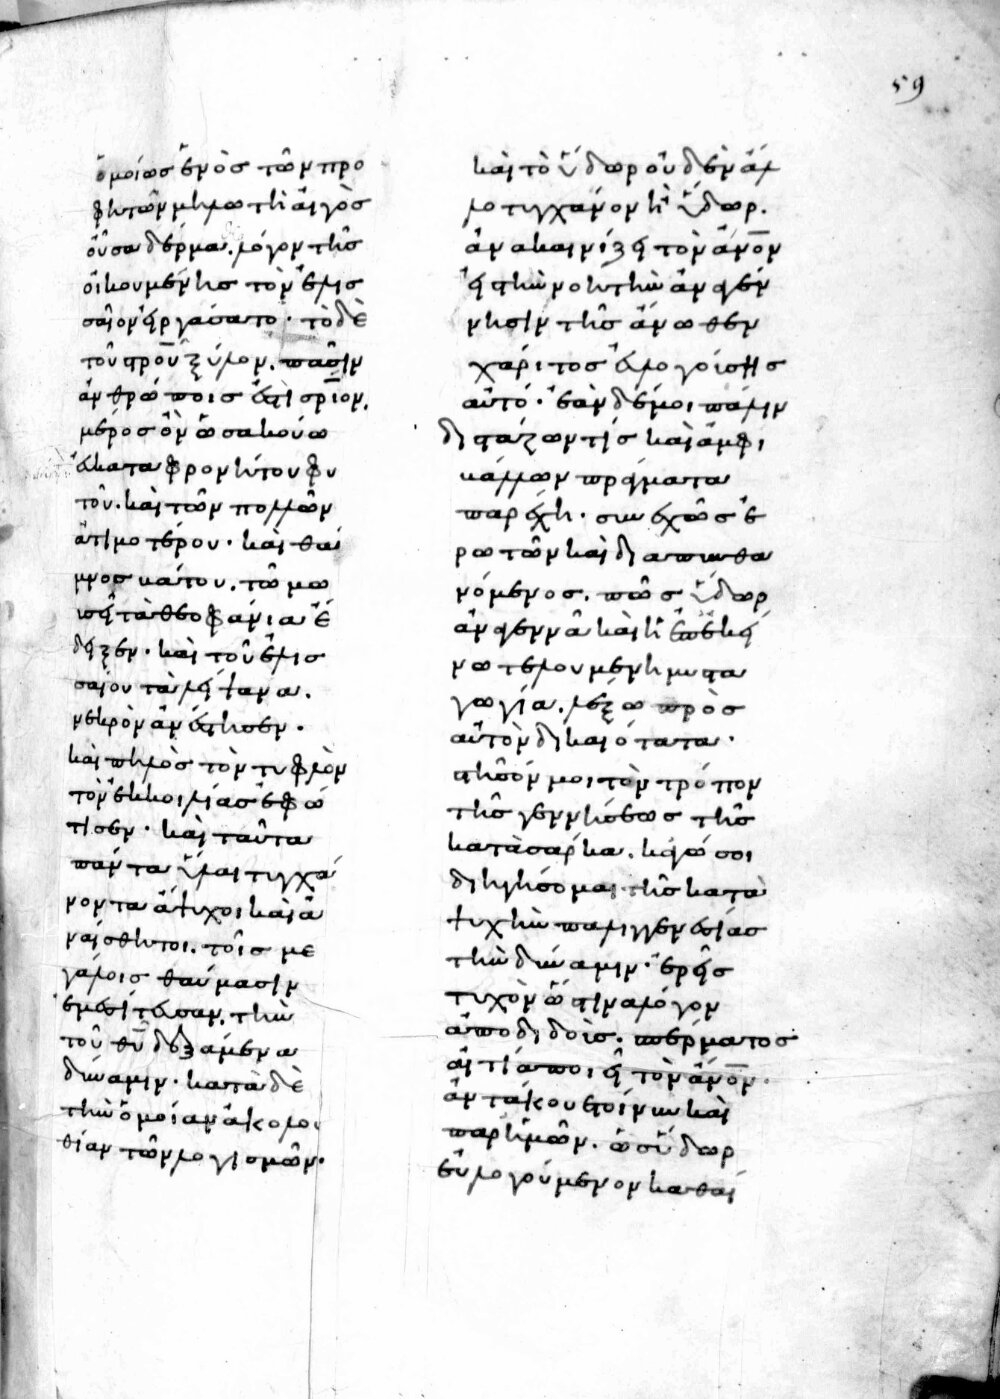 59
ὁμοίως ἑνὸς τῶν προ
φητῶν μηλωτὴ αἰγὸς
οὖσα δέρμα. λόγον τῆς
οἰκουμένης τὸν ἐλισ
σαῖον εἰργάσατο· τὸ δὲ
τοῦ σρου ξύλον. πᾶσιν
ἀνθρώποις ἐστὶ σριον.
μέρος ὂν ὡς ἀκούω
εὐκαταφρονήτου φυ
τοῦ. καὶ τῶν πολλῶν
ἀτιμοτέρου· καὶ θά
μνος βάτου. τῷ μω
ϋσεῖ τὰ θεοφάνια ἔ
δειξεν· καὶ τοῦ ἐλισ
σαίου τὰ λείψανα.
νεκρὸν ἀνέστησεν.
καὶ πηλὸς τὸν τυφλὸν
τὸν ἐκ κοιλίας ἐφώ
τισεν· καὶ ταῦτα
πάντα ὗλαι τυγχά
νοντα ἄψυχοι καὶ ἀ
ναίσθητοι. τοῖς με
γάλοις θαύμασιν
ἐμεσίτευσαν, τὴν
τοῦ θυ δεξάμενα
δύναμιν· κατὰ δὲ
τὴν ὁμοίαν ἀκολου
θίαν τῶν λογισμῶν.
καὶ τὸ ὕδωρ οὐδὲν ἄλ
λο τυγχάνον ἢ ὕδωρ.
ἀνακαινίζει τὸν ἀνον
εἰς τὴν νοητὴν ἀναγέν
νησιν τῆς ἄνωθεν
χάριτος εὐλογούσης
αὐτό· ἐὰν δέ μοι πάλιν
διστάζων τίς καὶ ἀμφι
βάλλων πράγματα
παρέχῃ· συνεχῶς ἐ
ρωτῶν καὶ διαπυνθα
νόμενος. πῶς ὕδωρ
ἀναγεννᾷ καὶ ἡ ἐπ' ἐκεί
νω τελουμένη μυστα
γωγία. λέξω πρὸς
αὐτὸν δικαιότατα·
στῆσόν μοι τὸν τρόπον
τῆς γεννήσεως τῆς
κατὰ σάρκα. κἀγώ σοι
διηγήσομαι τῆς κατὰ
ψυχὴν παλιγγενεσίας
τὴν δύναμιν· ἐρεῖς
τυχὸν ὥς τινα λόγον
ἀποδιδοὺς. σπέρματος
αἰτία ποιεῖ τὸν ἀνον.
ἀντάκουε τοίνυν καὶ
παρ' ἡμῶν. ὡς ὕδωρ
εὐλογούμενον καθαί